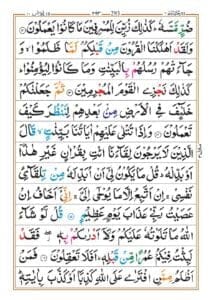 ضُرٍّ مَّسَّهٗ ؕ كَذٰلِكَ زُيِّنَ لِلْمُسْرِفِيْنَ مَا كَانُوْا يَعْمَلُوْنَ
وَلَقَدْ اَهْلَكْنَا الْقُرُوْنَ مِنْ قَبْلِكُمْ لَمَّا ظَلَمُوْا ۙ وَ
جَآءَتْهُمْ رُسُلُهُمْ بِالْبَيِّنٰتِ وَمَا كَانُوْا لِيُؤْمِنُوْا ؕ
كَذٰلِكَ نَجْزِى الْقَوْمَ الْمُجْرِمِيْنَ ثُمَّ جَعَلْنٰكُمْ
خَلٰٓئِفَ فِى الْاَرْضِ مِنْۢ بَعْدِهِمْ لِنَنْظُرَ كَيْفَ
تَعْمَلُوْنَ وَاِذَا تُتْلٰى عَلَيْهِمْ اٰيَاتُنَا بَيِّنٰتٍ ۙ قَالَ
الَّذِيْنَ لَا يَرْجُوْنَ لِقَآءَنَا ائْتِ بِقُرْاٰنٍ غَيْرِ هٰذَاۤ
اَوْ بَدِّلْهُ ؕ قُلْ مَا يَكُوْنُ لِىْۤ اَنْ اُبَدِّلَهٗ مِنْ تِلْقَآئِ
نَفْسِىْ ۚ اِنْ اَتَّبِعُ اِلَّا مَا يُوْحٰۤى اِلَىَّ ۚ اِنِّىْۤ اَخَافُ
اِنْ عَصَيْتُ رَبِّىْ عَذَابَ يَوْمٍ عَظِيْمٍ قُلْ لَّوْ شَآءَ
اللّٰهُ مَا تَلَوْتُهٗ عَلَيْكُمْ وَلَاۤ اَدْرٰىكُمْ بِهٖ ۖ فَقَدْ
لَبِثْتُ فِيْكُمْ عُمُرًا مِّنْ قَبْلِهٖ ؕ اَفَلَا تَعْقِلُوْنَ فَمَنْ
اَظْلَمُ مِمَّنِ افْتَرٰى عَلَى اللّٰهِ كَذِبًا اَوْ كَذَّبَ بِاٰيٰتِهٖ ؕ